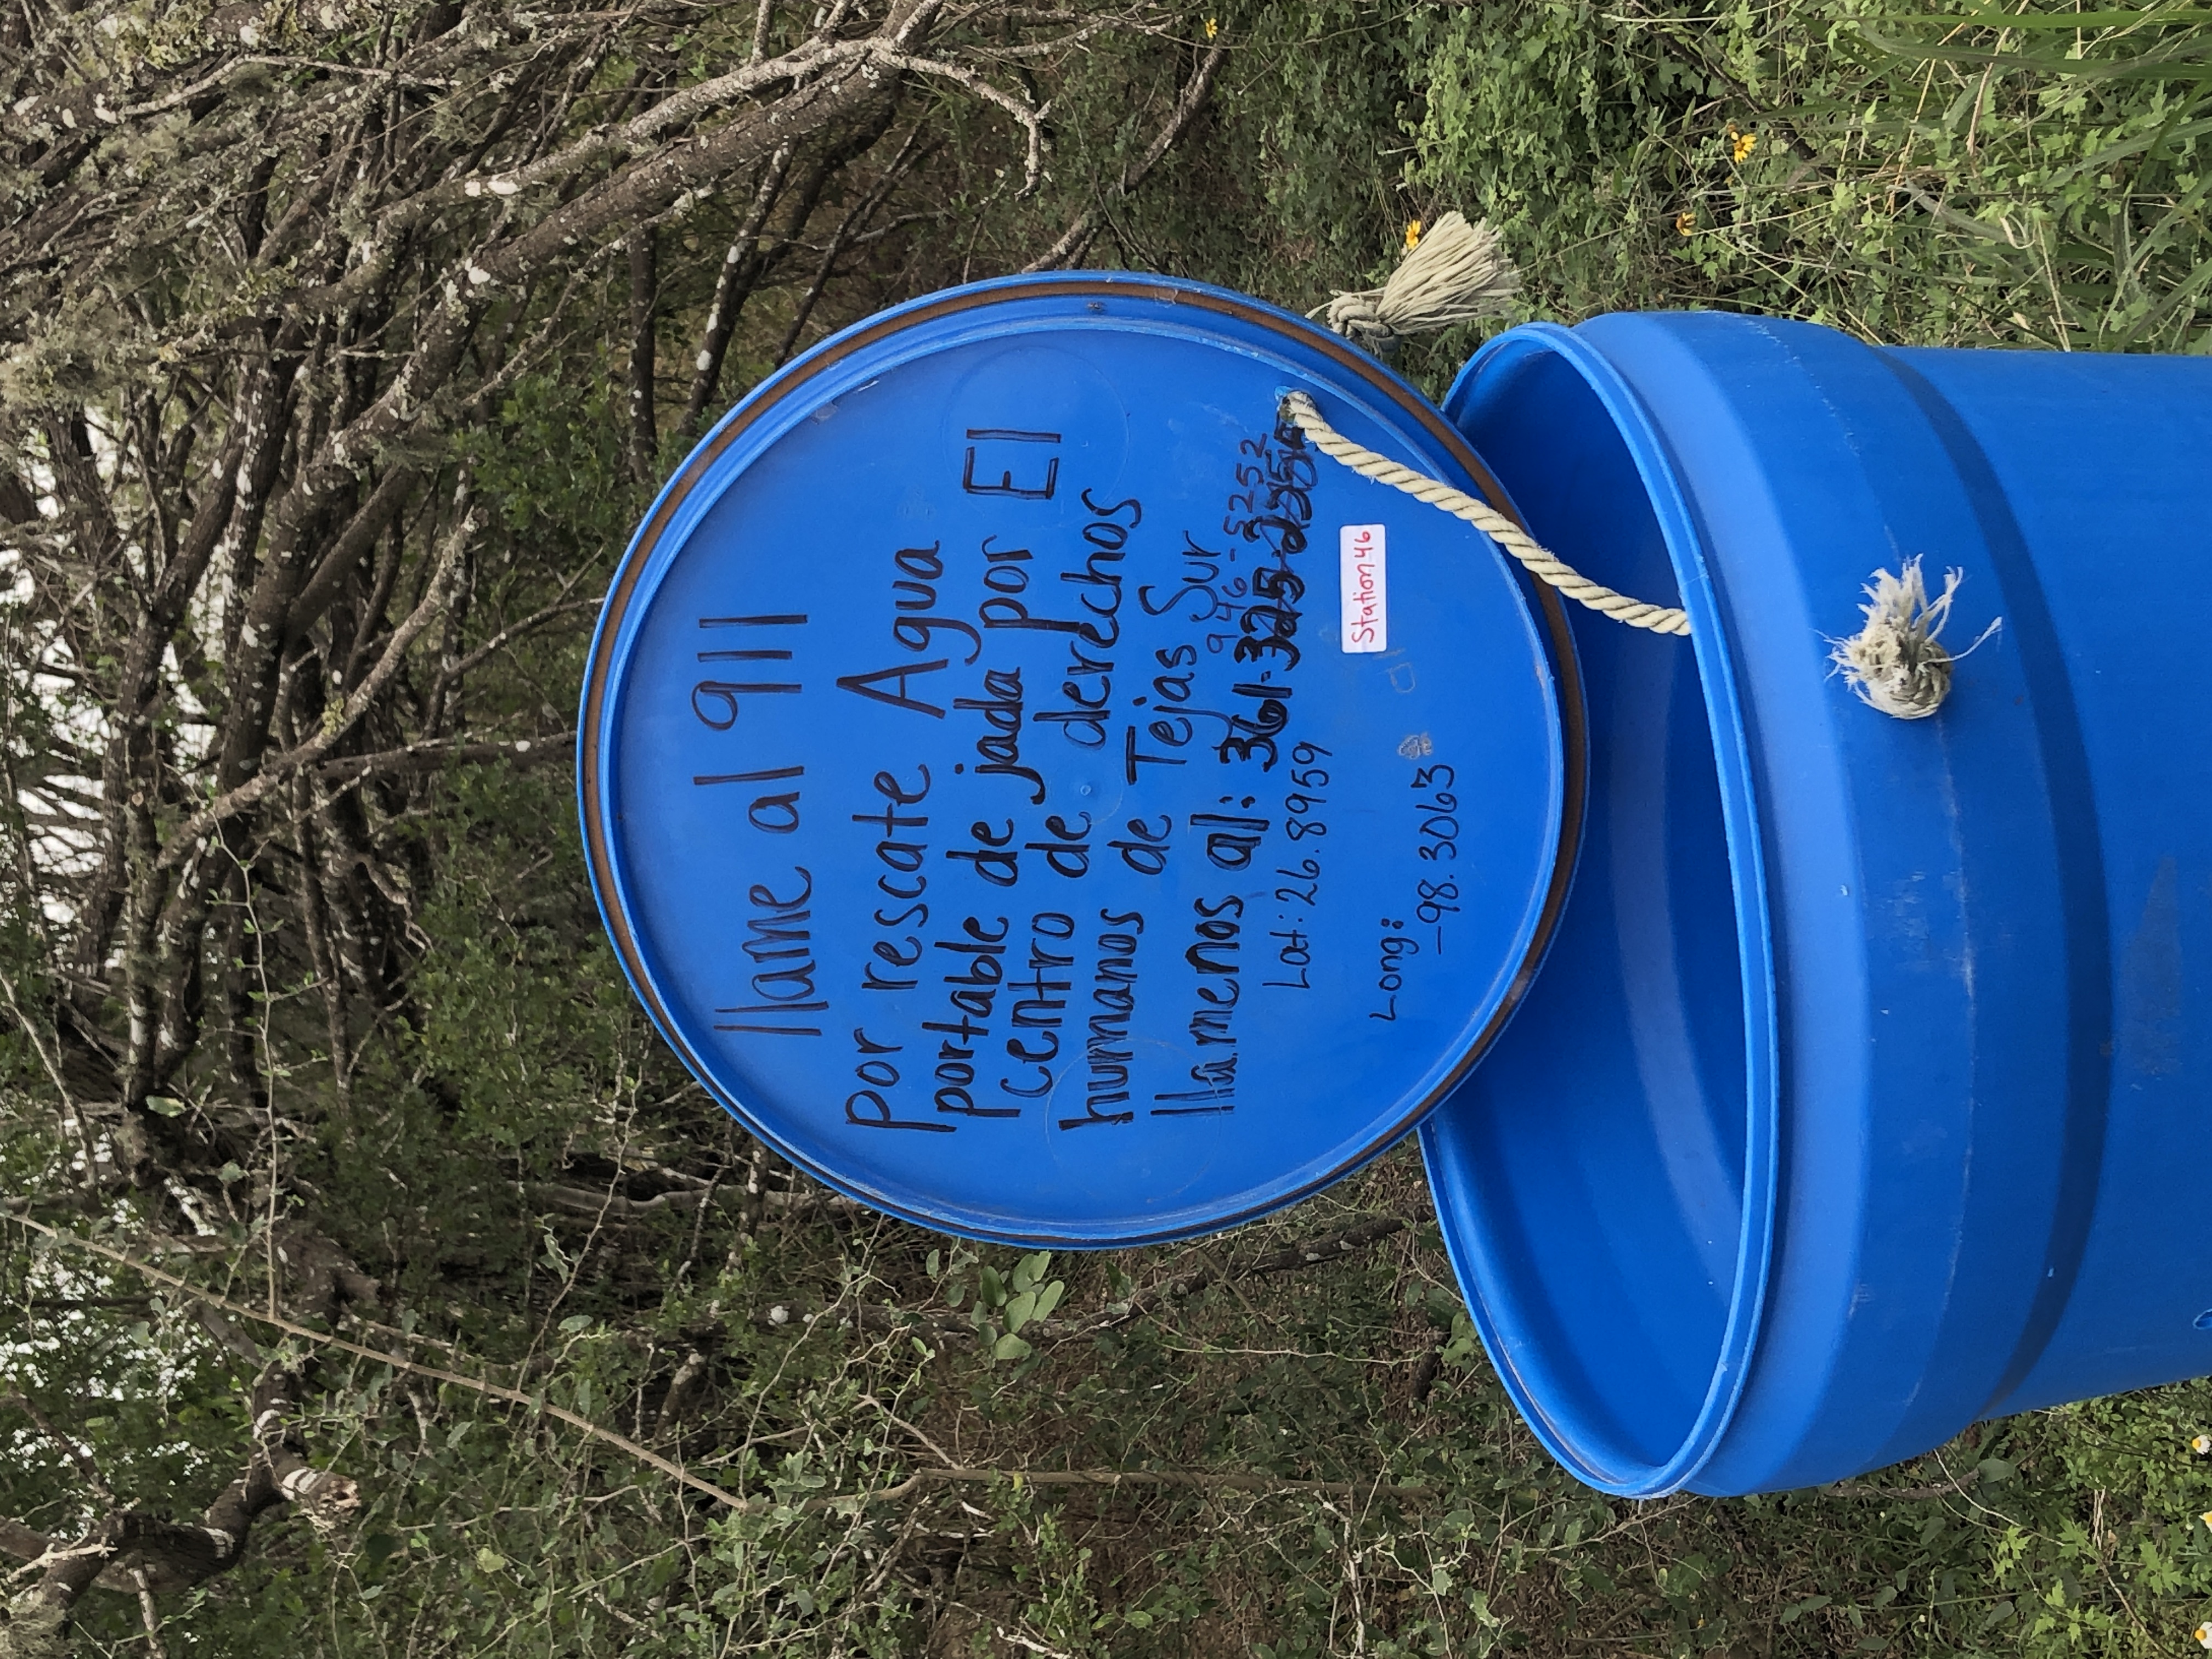 llame al 911
Por rescate Agua
portable de jada por El
Centro de derechos
humanos de Tejas Sur
946-5252
llamenos all: 361-325-
Lat: 26.8959
Long:
-98.3063
Station 46